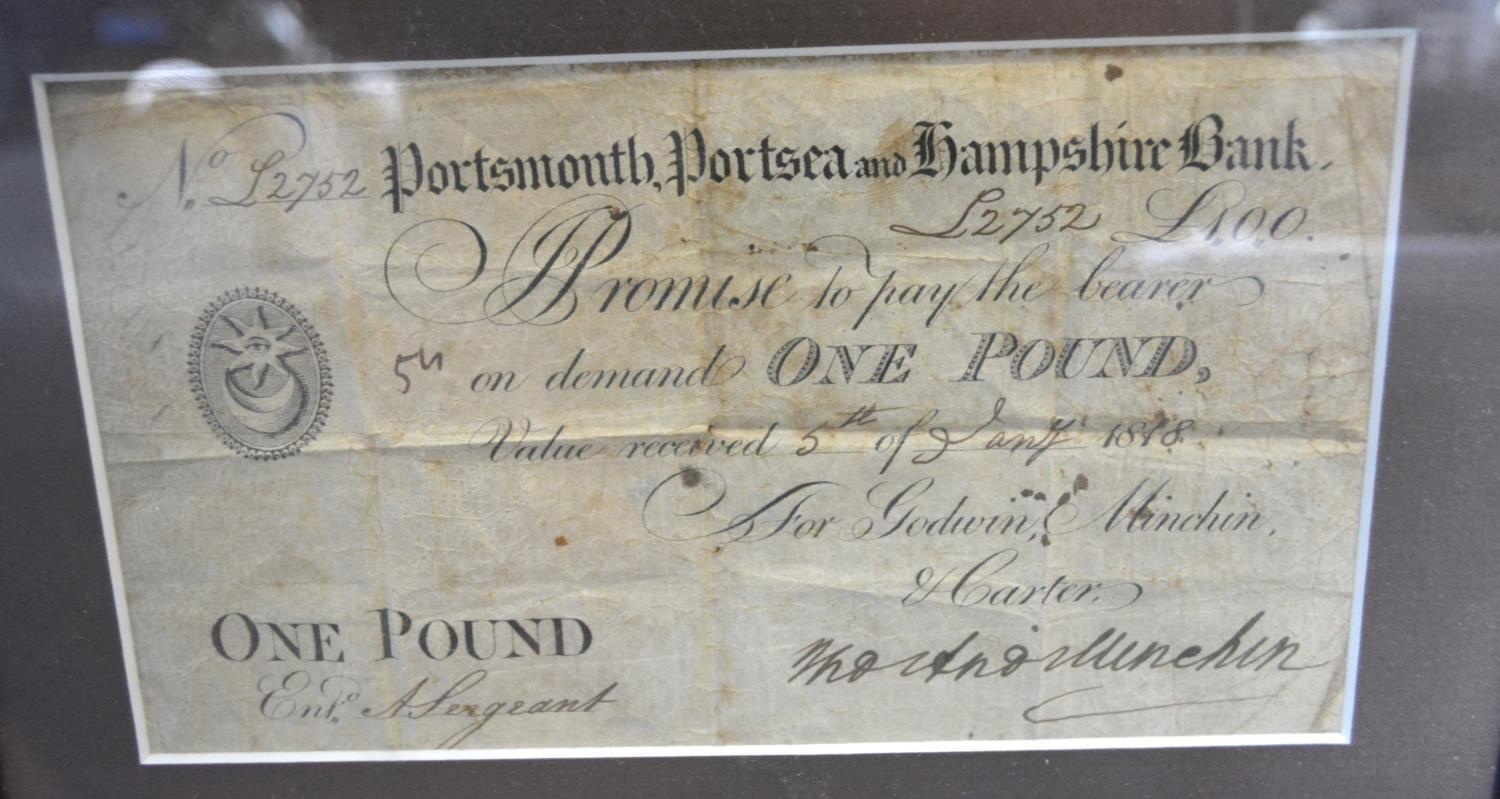 No. L2752 Portsmouth, Portsea and Hampshire Bank.
L2752 £1,0,0.
I Promise to pay the bearer
on demand ONE POUND,
Value received 5th of Jany 1818
For Godwin, Minchin,
& Carter.
ONE POUND
Thos And Minchin
Entd. A Sergeant